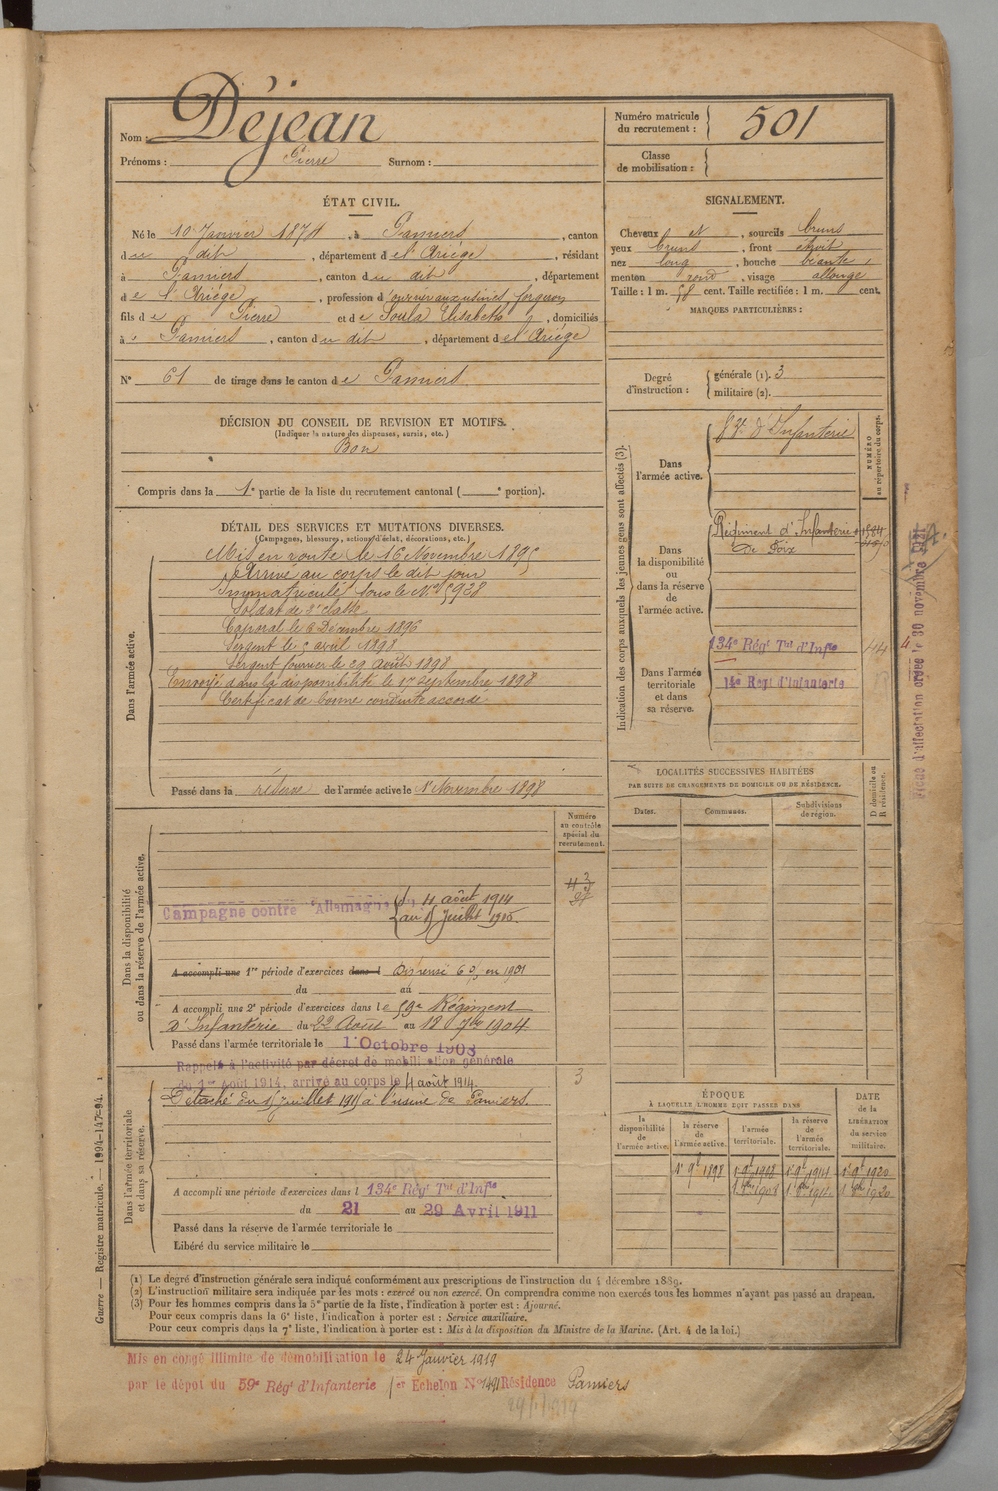 Nom : Déjean
Prénoms : Pierre Surnom :
Numéro matricule du recrutement : 501
Classe de mobilisation :
ÉTAT CIVIL.
Né le 10 Janvier 1874, à Pamiers, canton
du dit, département de l'Ariège, résidant
à Pamiers, canton du dit, département
de l'Ariège, profession d'ouvrier aux usines forgeron
fils de Pierre et de Soula Elisabeth, domiciliés
à Pamiers, canton du dit, département de l'Ariège
N° 61 de tirage dans le canton de Pamiers
DÉCISION DU CONSEIL DE REVISION ET MOTIFS.
(Indiquer la nature des dispenses, sursis, etc.)
Bon
Compris dans la 1e partie de la liste du recrutement cantonal ( e portion).
SIGNALEMENT.
Cheveux et, sourcils bruns
yeux bruns, front étroit
nez long, bouche béante,
menton rond, visage allongé
Taille : 1 m. 58 cent. Taille rectifiée : 1 m. cent.
MARQUES PARTICULIÈRES :
Degré d'instruction : générale (1). 3
militaire (2).
DÉTAIL DES SERVICES ET MUTATIONS DIVERSES.
(Campagnes, blessures, actions d'éclat, décorations, etc.)
Dans l'armée active.
Mis en route le 16 Novembre 1895
Arrivé au corps le dit jour
Immatriculé sous le N° 5928
Soldat de 2e classe
Caporal le Décembre 1896
Sergent le 5 avril 1898
Sergent fourrier le 29 août 1898
Envoyé dans la disponibilité le 17 Septembre 1898
Certificat de bonne conduite accordé
Passé dans la réserve de l'armée active le 1er Novembre 1898
Indication des corps auxquels les jeunes gens sont affectés (3).
NUMÉRO au répertoire du corps.
Dans l'armée active.
d'Infanterie
Dans la disponibilité ou dans la réserve de l'armée active.
Régiment d'Infanterie
De Foix
Dans l'armée territoriale et dans sa réserve.
134e Régt Tal d'Infie 44
14e Regt d'Infanterie
Fiche d'affectation créée le 30 novembre
LOCALITÉS SUCCESSIVES HABITÉES
PAR SUITE DE CHANGEMENTS DE DOMICILE OU DE RÉSIDENCE.
Dates. Communes. Subdivisions de région. D domicile ou R résidence.
Numéro au contrôle spécial du recrutement.
Dans la disponibilité ou dans la réserve de l'armée active.
Campagne contre l'Allemagne du 4 août 1914
au 15 Juillet 1915.
A accompli une 1re période d'exercices dans l Dispensé en 1901
du au
A accompli une 2e période d'exercices dans le 59e Régiment
D'Infanterie du 22 Août au 18 7bre 1904
Passé dans l'armée territoriale le 1 Octobre 1908
Rappelé à l'activité par décret de mobilisation générale
du 1er Août 1914, arrivé au corps le 4 août 1914.
3
Dans l'armée territoriale et dans sa réserve.
Détaché du 15 Juillet 1915 à l'usine de Pamiers.
A accompli une période d'exercices dans l 134e Régt Tal d'Infie
du 21 au 29 Avril 1911
Passé dans la réserve de l'armée territoriale le
Libéré du service militaire le
ÉPOQUE
À LAQUELLE L'HOMME DOIT PASSER DANS
DATE de la LIBÉRATION du service militaire.
la disponibilité de l'armée active. la réserve de l'armée active. l'armée territoriale. la réserve de l'armée territoriale.
1er 9bre 1898 1908 1914 1920
Guerre — Registre matricule. — 1894-147-94. 1
(1) Le degré d'instruction générale sera indiqué conformément aux prescriptions de l'instruction du 4 décembre 1889.
(2) L'instruction militaire sera indiquée par les mots : exercé ou non exercé. On comprendra comme non exercés tous les hommes n'ayant pas passé au drapeau.
(3) Pour les hommes compris dans la 5e partie de la liste, l'indication à porter est : Ajourné.
Pour ceux compris dans la 6e liste, l'indication à porter est : Service auxiliaire.
Pour ceux compris dans la 7e liste, l'indication à porter est : Mis à la disposition du Ministre de la Marine. (Art. 4 de la loi.)
Mis en congé illimité de démobilisation le 24 Janvier 1919
par le dépôt du 59e Régt d'Infanterie 1er Echelon N° 1491 Résidence Pamiers